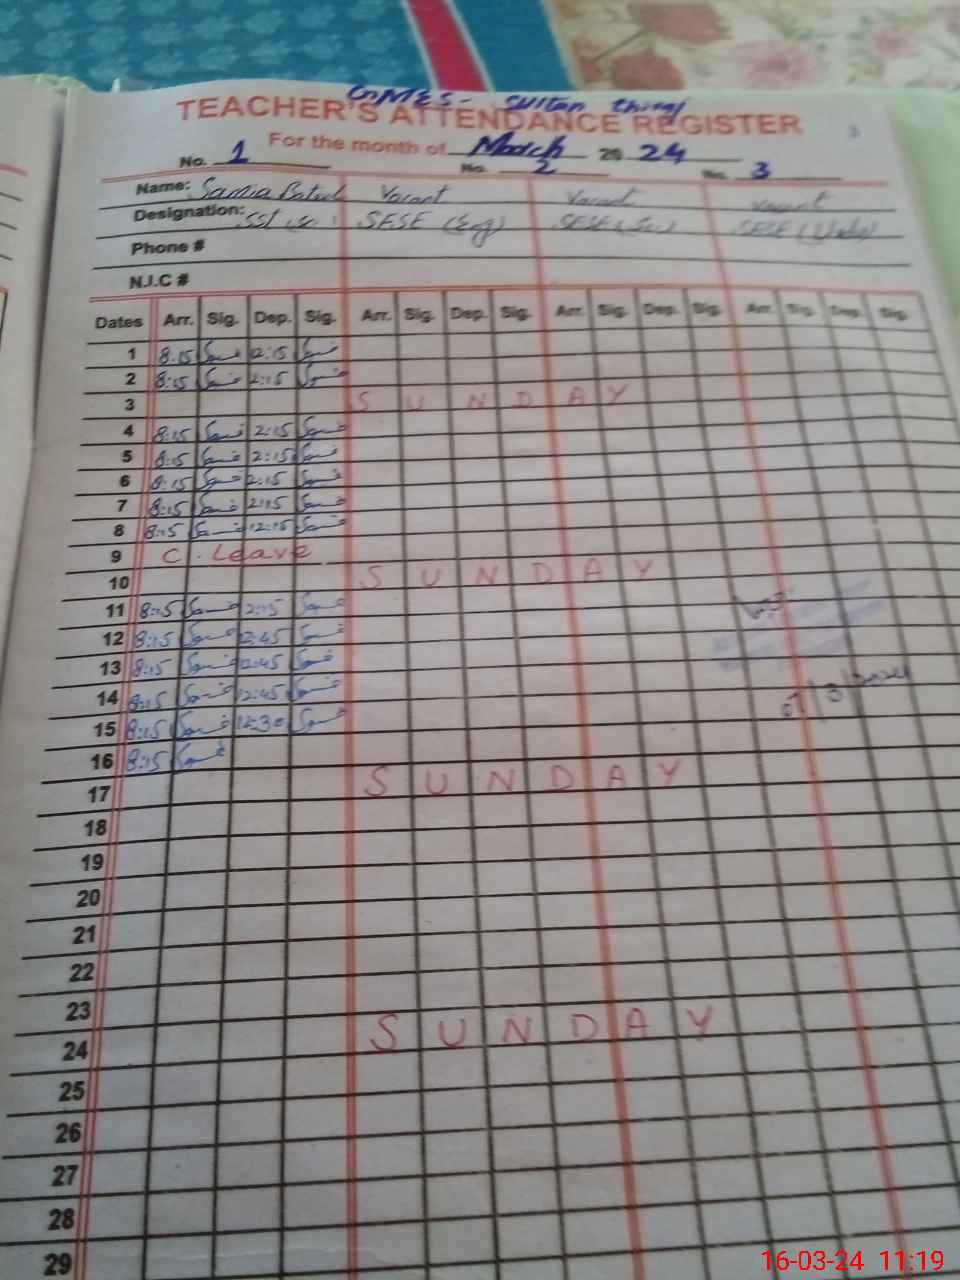 GMES - Sultan thingi
TEACHER'S ATTENDANCE REGISTER
For the month of March 2024
No. 1 No. 2 No. 3
Name: Samia Batul Vacant Vacant Vacant
Designation: SST SESE (Eng) SESE (Sci) SESE (Urdu)
Phone #
N.I.C #
Dates Arr. Sig. Dep. Sig. Arr. Sig. Dep. Sig. Arr. Sig. Dep. Sig. Arr. Sig. Dep. Sig.
1 8:15 12:15
2 8:15 2:15
3 SUNDAY
4 8:15 2:15
5 8:15 2:15
6 8:15 2:15
7 8:15 2:15
8 8:15 12:15
9 C. Leave
10 SUNDAY
11 8:15 2:15
12 8:15 12:45
13 8:15 12:45
14 8:15 12:45
15 8:15 12:30
16 8:15
17 SUNDAY
18
19
20
21
22
23
24 SUNDAY
25
26
27
28
29
16-03-24 11:19